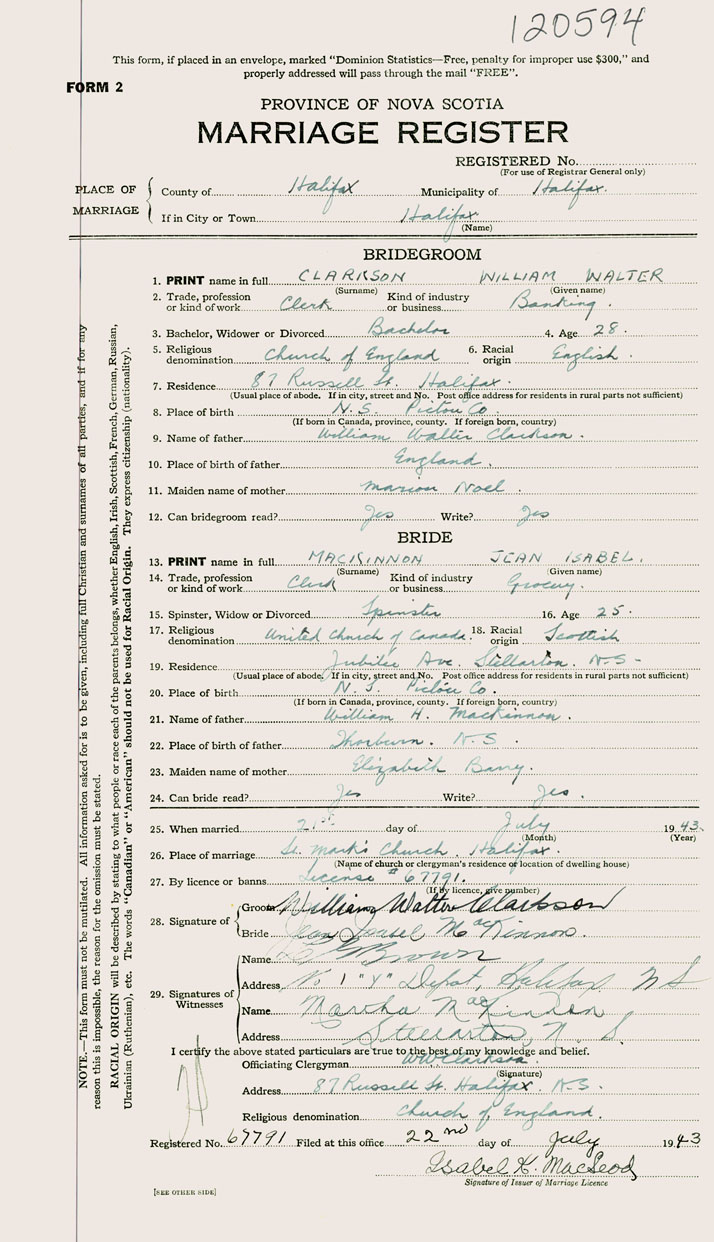 120594
This form, if placed in an envelope, marked "Dominion Statistics—Free, penalty for improper use $300," and
properly addressed will pass through the mail "FREE".
FORM 2
PROVINCE OF NOVA SCOTIA
MARRIAGE REGISTER
REGISTERED No.
(For use of Registrar General only)
PLACE OF MARRIAGE
County of Halifax Municipality of Halifax.
If in City or Town Halifax
(Name)
BRIDEGROOM
1. PRINT name in full CLARKSON WILLIAM WALTER
(Surname) (Given name)
2. Trade, profession or kind of work Clerk Kind of industry or business Banking.
3. Bachelor, Widower or Divorced Bachelor 4. Age 28.
5. Religious denomination Church of England 6. Racial origin English.
7. Residence 87 Russell St. Halifax.
(Usual place of abode. If in city, street and No. Post office address for residents in rural parts not sufficient)
8. Place of birth N.S. Pictou Co.
(If born in Canada, province, county. If foreign born, country)
9. Name of father William Walter Clarkson.
10. Place of birth of father England.
11. Maiden name of mother Marion Noel.
12. Can bridegroom read? Yes Write? Yes
BRIDE
13. PRINT name in full MACKINNON JEAN ISABEL.
(Surname) (Given name)
14. Trade, profession or kind of work Clerk Kind of industry or business Grocery.
15. Spinster, Widow or Divorced Spinster 16. Age 25.
17. Religious denomination United Church of Canada. 18. Racial origin Scottish
19. Residence Jubilee Ave. Stellarton. N.S-
(Usual place of abode. If in city, street and No. Post office address for residents in rural parts not sufficient)
20. Place of birth N.S. Pictou Co.
(If born in Canada, province, county. If foreign born, country)
21. Name of father William H. MacKinnon.
22. Place of birth of father Thorburn. N.S
23. Maiden name of mother Elizabeth Barry.
24. Can bride read? Yes Write? Yes.
25. When married 21st day of July 1943.
(Month) (Year)
26. Place of marriage St. Mark's Church. Halifax.
(Name of church or clergyman's residence or location of dwelling house)
27. By licence or banns License #67791.
(If by licence, give number)
28. Signature of Groom William Walter Clarkson
Bride Jean Isabel MacKinnon.
29. Signatures of Witnesses
Name Brown
Address No 1 "Y" Depot, Halifax N S
Name Martha MacKinnon
Address Stellarton, N. S.
I certify the above stated particulars are true to the best of my knowledge and belief.
Officiating Clergyman WW Clarkson.
(Signature)
Address 87 Russell St. Halifax. N.S.
Religious denomination Church of England.
Registered No. 67791 Filed at this office 22nd day of July 1943
Isabel K. MacLeod
Signature of Issuer of Marriage Licence
[SEE OTHER SIDE]
NOTE.—This form must not be mutilated. All information asked for is to be given, including full Christian and surnames of all parties, and if for any
reason this is impossible, the reason for the omission must be stated.
RACIAL ORIGIN will be described by stating to what people or race each of the parents belongs, whether English, Irish, Scottish, French, German, Russian,
Ukrainian (Ruthenian), etc. The words "Canadian" or "American" should not be used for Racial Origin. They express citizenship (nationality).